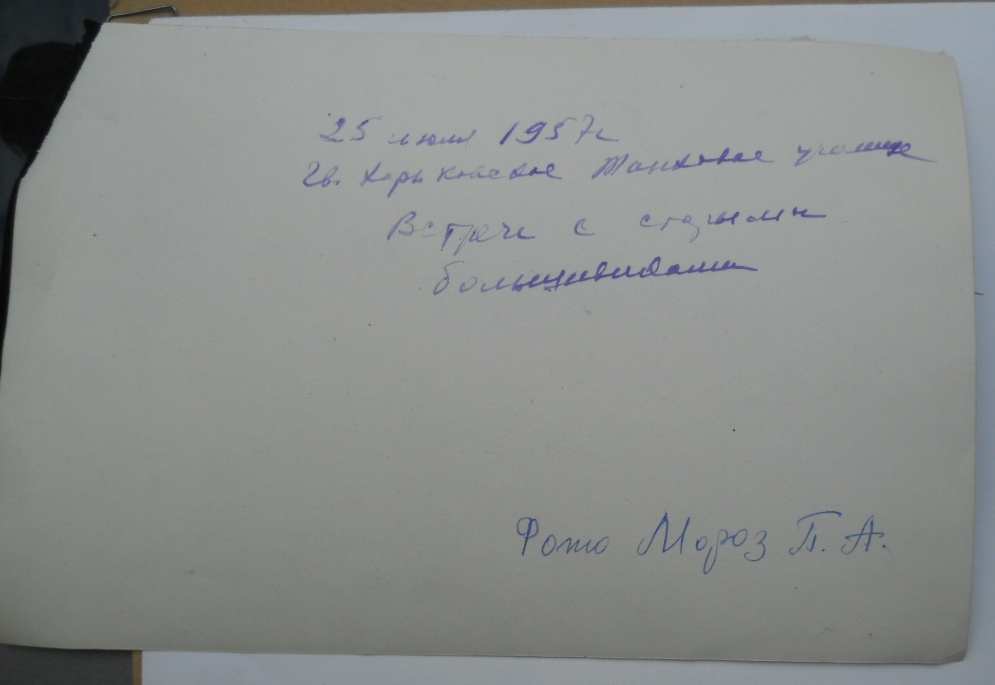 25 июля 1957г
Гв. Харьковское Танковое училище
Встреча с старыми
большевиками
Фото Мороз П. А.